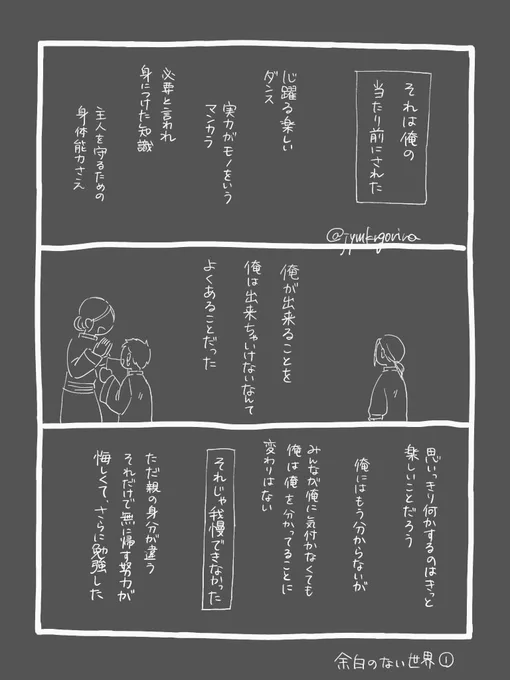 それは俺の
当たり前にされた
心躍る楽しい
ダンス
実力がモノをいう
マンカラ
必要と言われ
身につけた知識
主人を守るための
身体能力さえ
俺が出来ることを
俺は出来ちゃいけないなんて
よくあることだった
思いっきり何かするのはきっと
楽しいことだろう
俺にはもう分からないが
みんなが俺に気付かなくても
俺は俺を分かってることに
変わりはない
それじゃ我慢できなかった
ただ親の身分が違う
それだけで無に帰す努力が
悔しくて、さらに勉強した
余白のない世界①